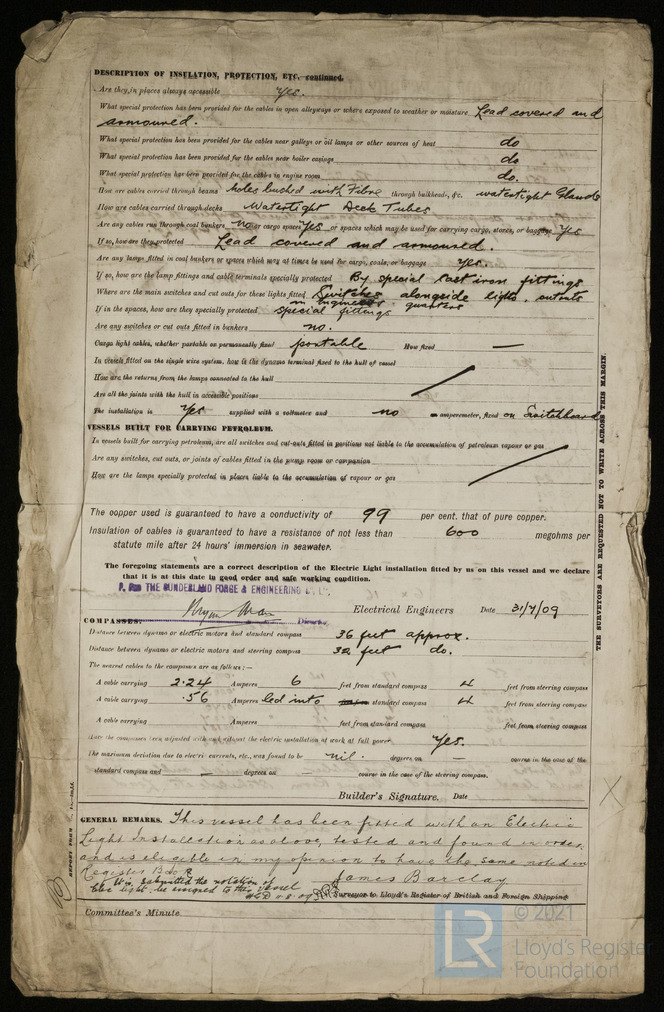 DESCRIPTION OF INSULATION, PROTECTION, ETC. continued.
Are they, in places always accessible Yes.
What special protection has been provided for the cables in open alleyways or where exposed to weather or moisture Lead covered and
armoured.
What special protection has been provided for the cables near galleys or oil lamps or other sources of heat do
What special protection has been provided for the cables near boiler casings do
What special protection has been provided for the cables in engine room do.
How are cables carried through beams holes bushed with Fibre through bulkheads, &c. watertight Glands
How are cables carried through decks Watertight Deck Tubes
Are any cables run through coal bunkers no or cargo spaces Yes or spaces which may be used for carrying cargo, stores, or baggage Yes
If so, how are they protected Lead covered and armoured.
Are any lamps fitted in coal bunkers or spaces which may at times be used for cargo, coals, or baggage Yes.
If so, how are the lamp fittings and cable terminals specially protected By special Cast iron fittings
Where are the main switches and cut outs for these lights fitted Switches alongside light, cutouts
in engineers quarters
If in the spaces, how are they specially protected special fittings
Are any switches or cut outs fitted in bunkers no.
Cargo light cables, whether portable or permanently fixed portable How fixed —
In vessels fitted on the single wire system, how is the dynamo terminal fixed to the hull of vessel
How are the returns from the lamps connected to the hull
Are all the joints with the hull in accessible positions
The installation is Yes supplied with a voltmeter and no an amperemeter, fixed on Switchboard
VESSELS BUILT FOR CARRYING PETROLEUM.
In vessels built for carrying petroleum, are all switches and cut-outs fitted in positions not liable to the accumulation of petroleum vapour or gas
Are any switches, cut outs, or joints of cables fitted in the pump room or companion
How are the lamps specially protected in places liable to the accumulation of vapour or gas
The copper used is guaranteed to have a conductivity of 99 per cent. that of pure copper.
Insulation of cables is guaranteed to have a resistance of not less than 600 megohms per
statute mile after 24 hours' immersion in seawater.
The foregoing statements are a correct description of the Electric Light installation fitted by us on this vessel and we declare
that it is at this date in good order and safe working condition.
P. PRO THE SUNDERLAND FORGE & ENGINEERING Co., Ld.
Electrical Engineers Date 31/7/09
COMPASSES.
Distance between dynamo or electric motors and standard compass 36 feet approx.
Distance between dynamo or electric motors and steering compass 32 feet do.
The nearest cables to the compasses are as follows:—
A cable carrying 2.24 Amperes 6 feet from standard compass 4 feet from steering compass
A cable carrying .56 Amperes led into standard compass 4 feet from steering compass
A cable carrying Amperes feet from standard compass feet from steering compass
Have the compasses been adjusted with and without the electric installation at work at full power Yes.
The maximum deviation due to electric currents, etc., was found to be nil. degrees on — course in the case of the
standard compass and — degrees on — course in the case of the steering compass.
Builder's Signature. Date
GENERAL REMARKS. This vessel has been fitted with an Electric
Light Installation as above, tested and found in order,
and is eligible in my opinion to have the same noted in
Register Book
James Barclay
It is submitted the notation of
Elec light be assigned to this vessel
Surveyor to Lloyd's Register of British and Foreign Shipping
Committee's Minute
THE SURVEYORS ARE REQUESTED NOT TO WRITE ACROSS THIS MARGIN.
© 2021
LR
Lloyd's Register
Foundation